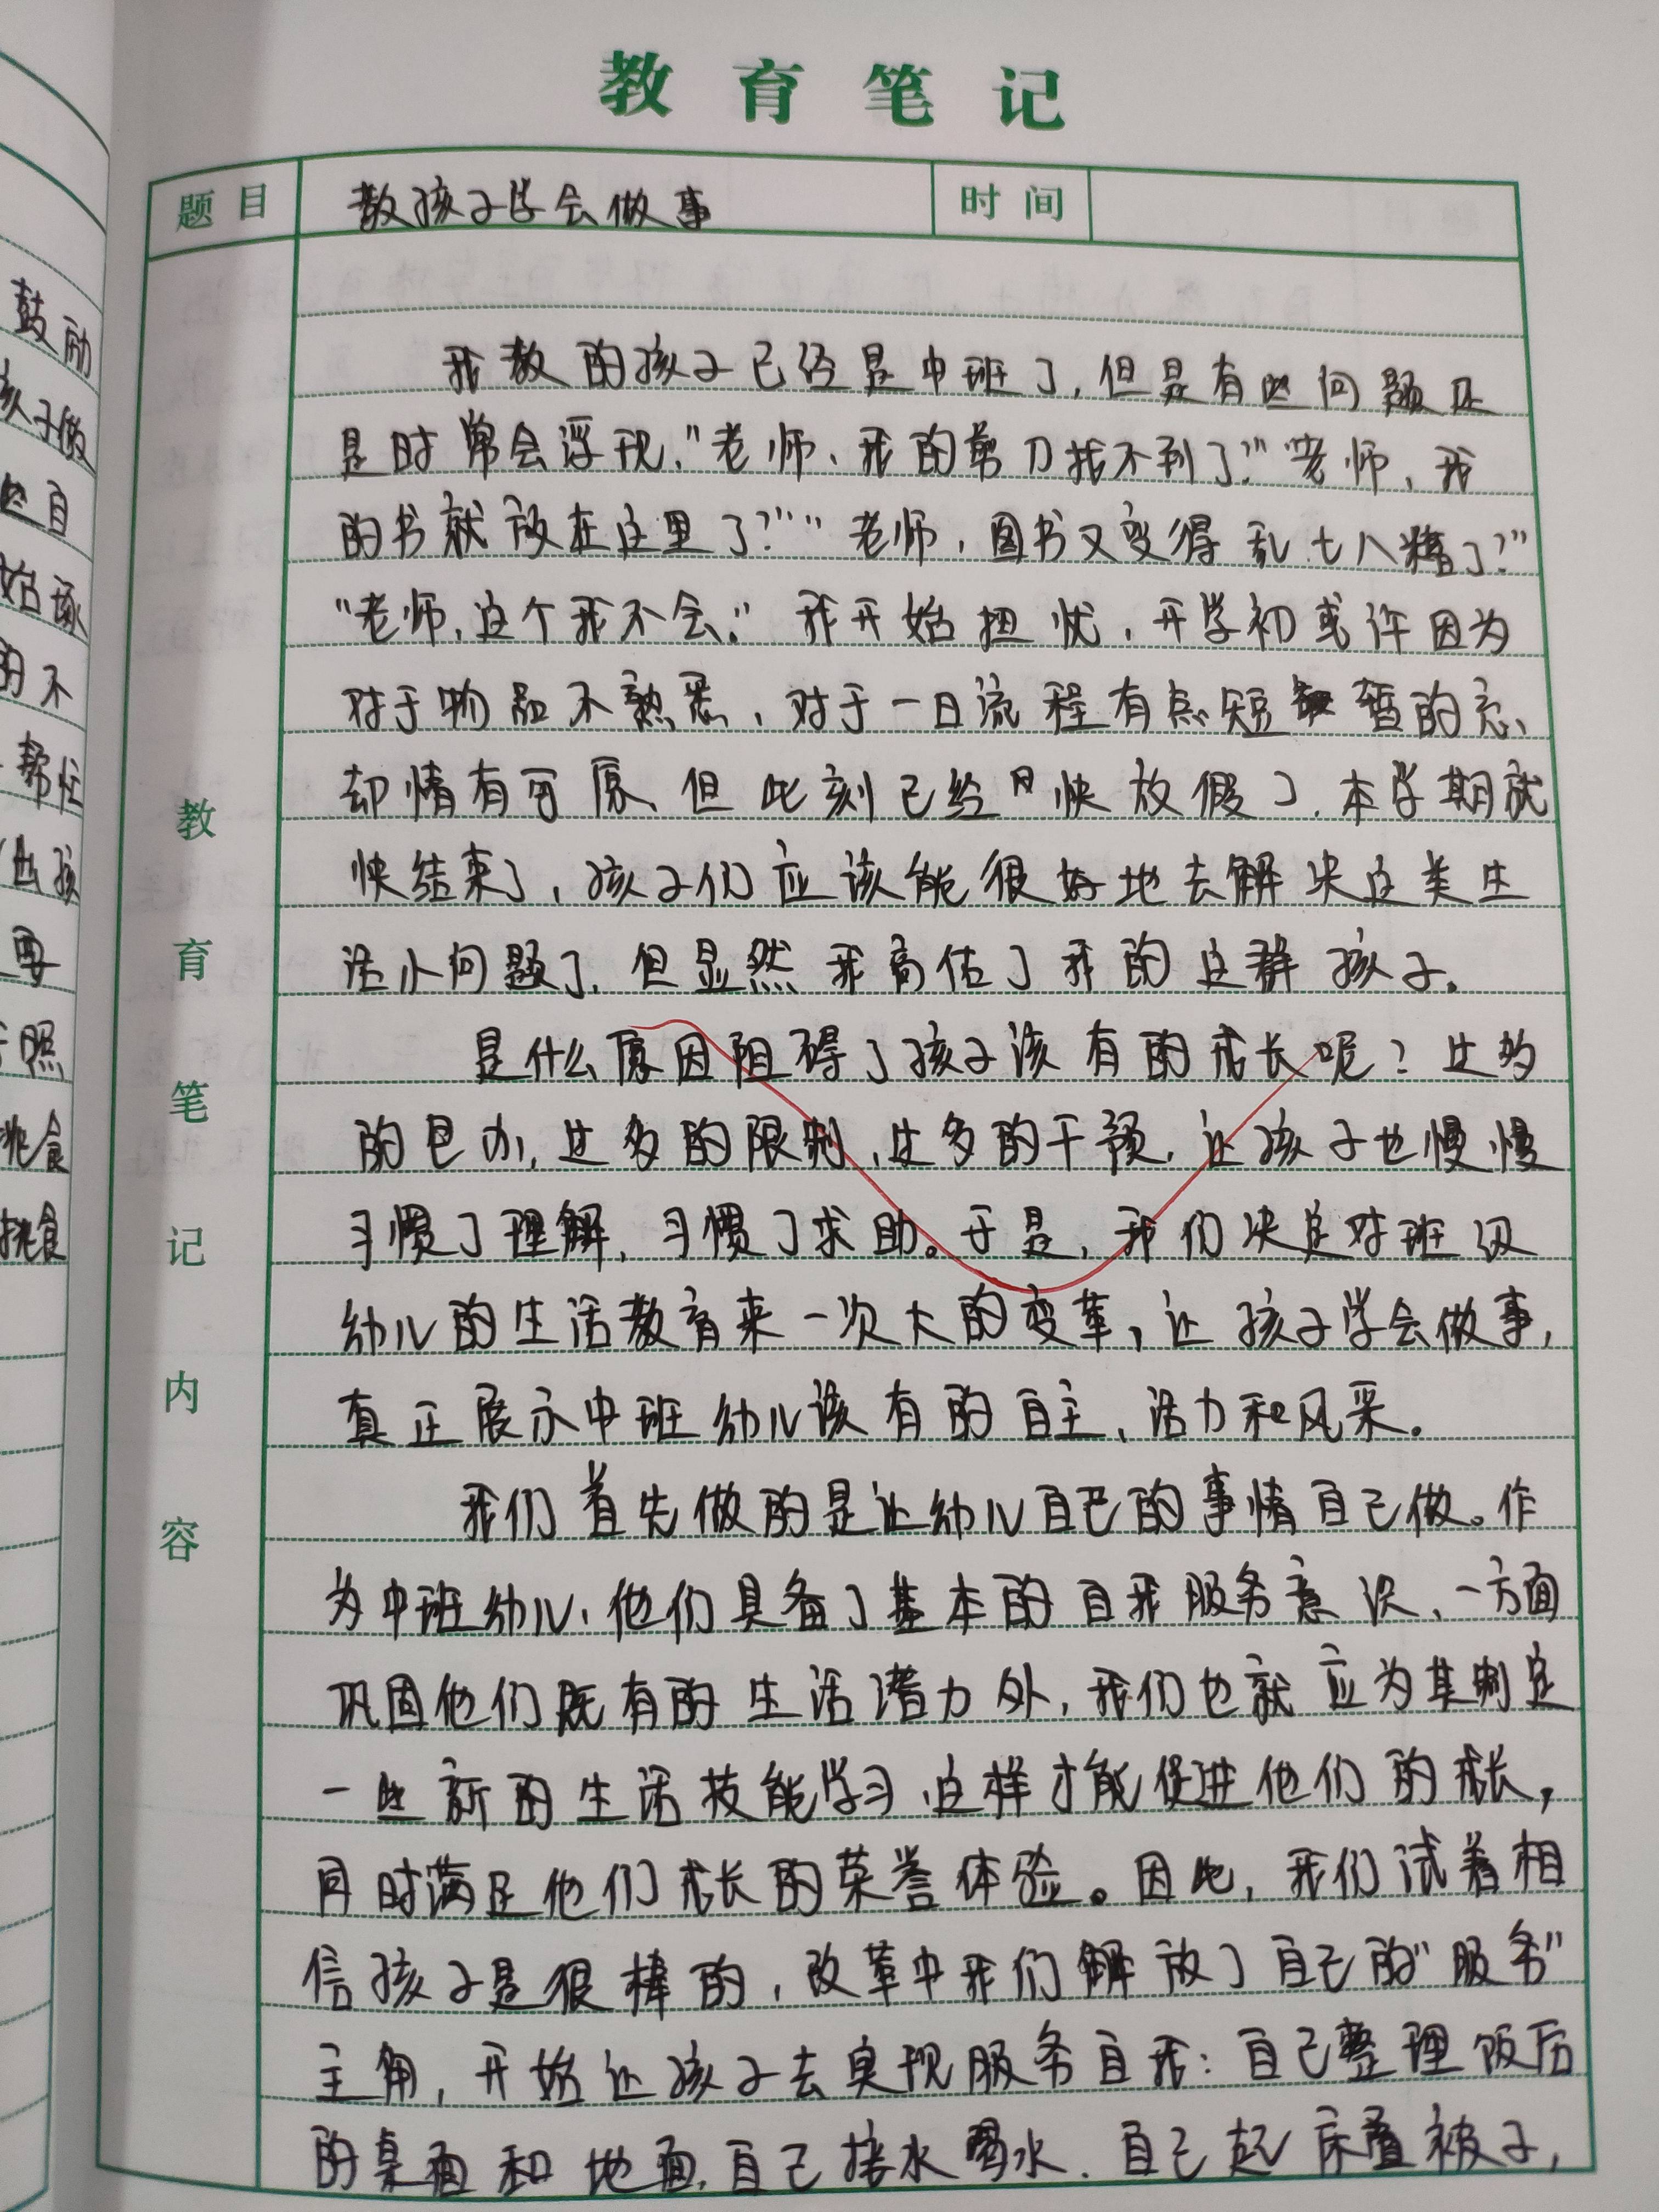 教育笔记
题目 教孩子学会做事 时间
我教的孩子已经是中班了,但是有些问题还
是时常会浮现,"老师、我的剪刀找不到了?""老师,我
的书就放在这里了?""老师,图书又变得乱七八糟了?"
"老师,这个我不会。"我开始担忧,开学初或许因为
对于物品不熟悉,对于一日流程有点短暂的忘、
却情有可原、但此刻已经快放假了,本学期就
快结束了,孩子们应该能很好地去解决这类生
活小问题了,但显然我高估了我的这群孩子。
是什么原因阻碍了孩子该有的成长呢?过多
的包办,过多的限制,过多的干预,让孩子也慢慢
习惯了理解,习惯了求助。于是,我们决定对班级
幼儿的生活教育来一次大的变革,让孩子学会做事,
真正展示中班幼儿该有的自主、活力和风采。
我们首先做的是让幼儿自己的事情自己做。作
为中班幼儿,他们具备了基本的自我服务意识、一方面
巩固他们既有的生活潜力外,我们也就应为其制定
一些新的生活技能学习,这样才能促进他们的成长,
同时满足他们成长的荣誉体验。因此,我们试着相
信孩子是很棒的,改革中我们解放了自己的"服务"
主角,开始让孩子去实现服务自我:自己整理饭后
的桌面和地面,自己接水喝水、自己起床叠被子,
教
育
笔
记
内
容
鼓励
孩子做
些自
始琢
的不
帮忙
些孩
要
照
挑食
挑食